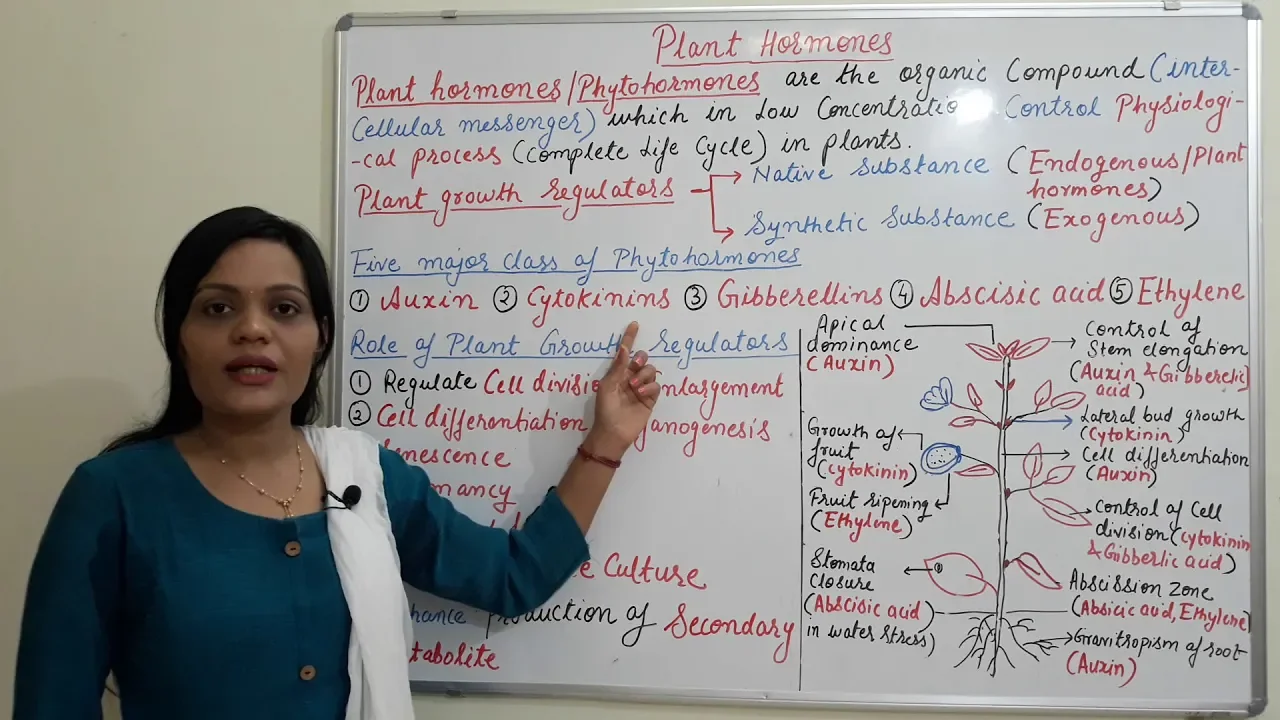 Plant Hormones
Plant hormones/Phytohormones are the organic Compound (inter-
Cellular messenger) which in Low Concentratio Control Physiologi-
-cal process (Complete Life Cycle) in plants.
Plant growth regulators
Native Substance (Endogenous/Plant
hormones)
Synthetic Substance (Exogenous)
Five major class of Phytohormones
① Auxin ② Cytokinins ③ Gibberellins ④ Abscisic acid ⑤ Ethylene
Role of Plant Growth regulators
① Regulate Cell divisio enlargement
② Cell differentiation ganogenesis
nescence
mancy
e Culture
hance production of Secondary
tabolite
Apical
dominance
(Auxin)
Growth of
fruit
(Cytokinin)
Fruit ripening
(Ethylene)
Stomata
Closure
(Abscisic acid)
in water stress)
Control of
Stem elongation
(Auxin & Gibberelic
acid)
Lateral bud growth
(Cytokinin)
Cell differentiation
(Auxin)
Control of Cell
division (Cytokinin
& Gibberlic acid)
Abscission Zone
(Absicic acid, Ethylene)
Gravitropism of root
(Auxin)